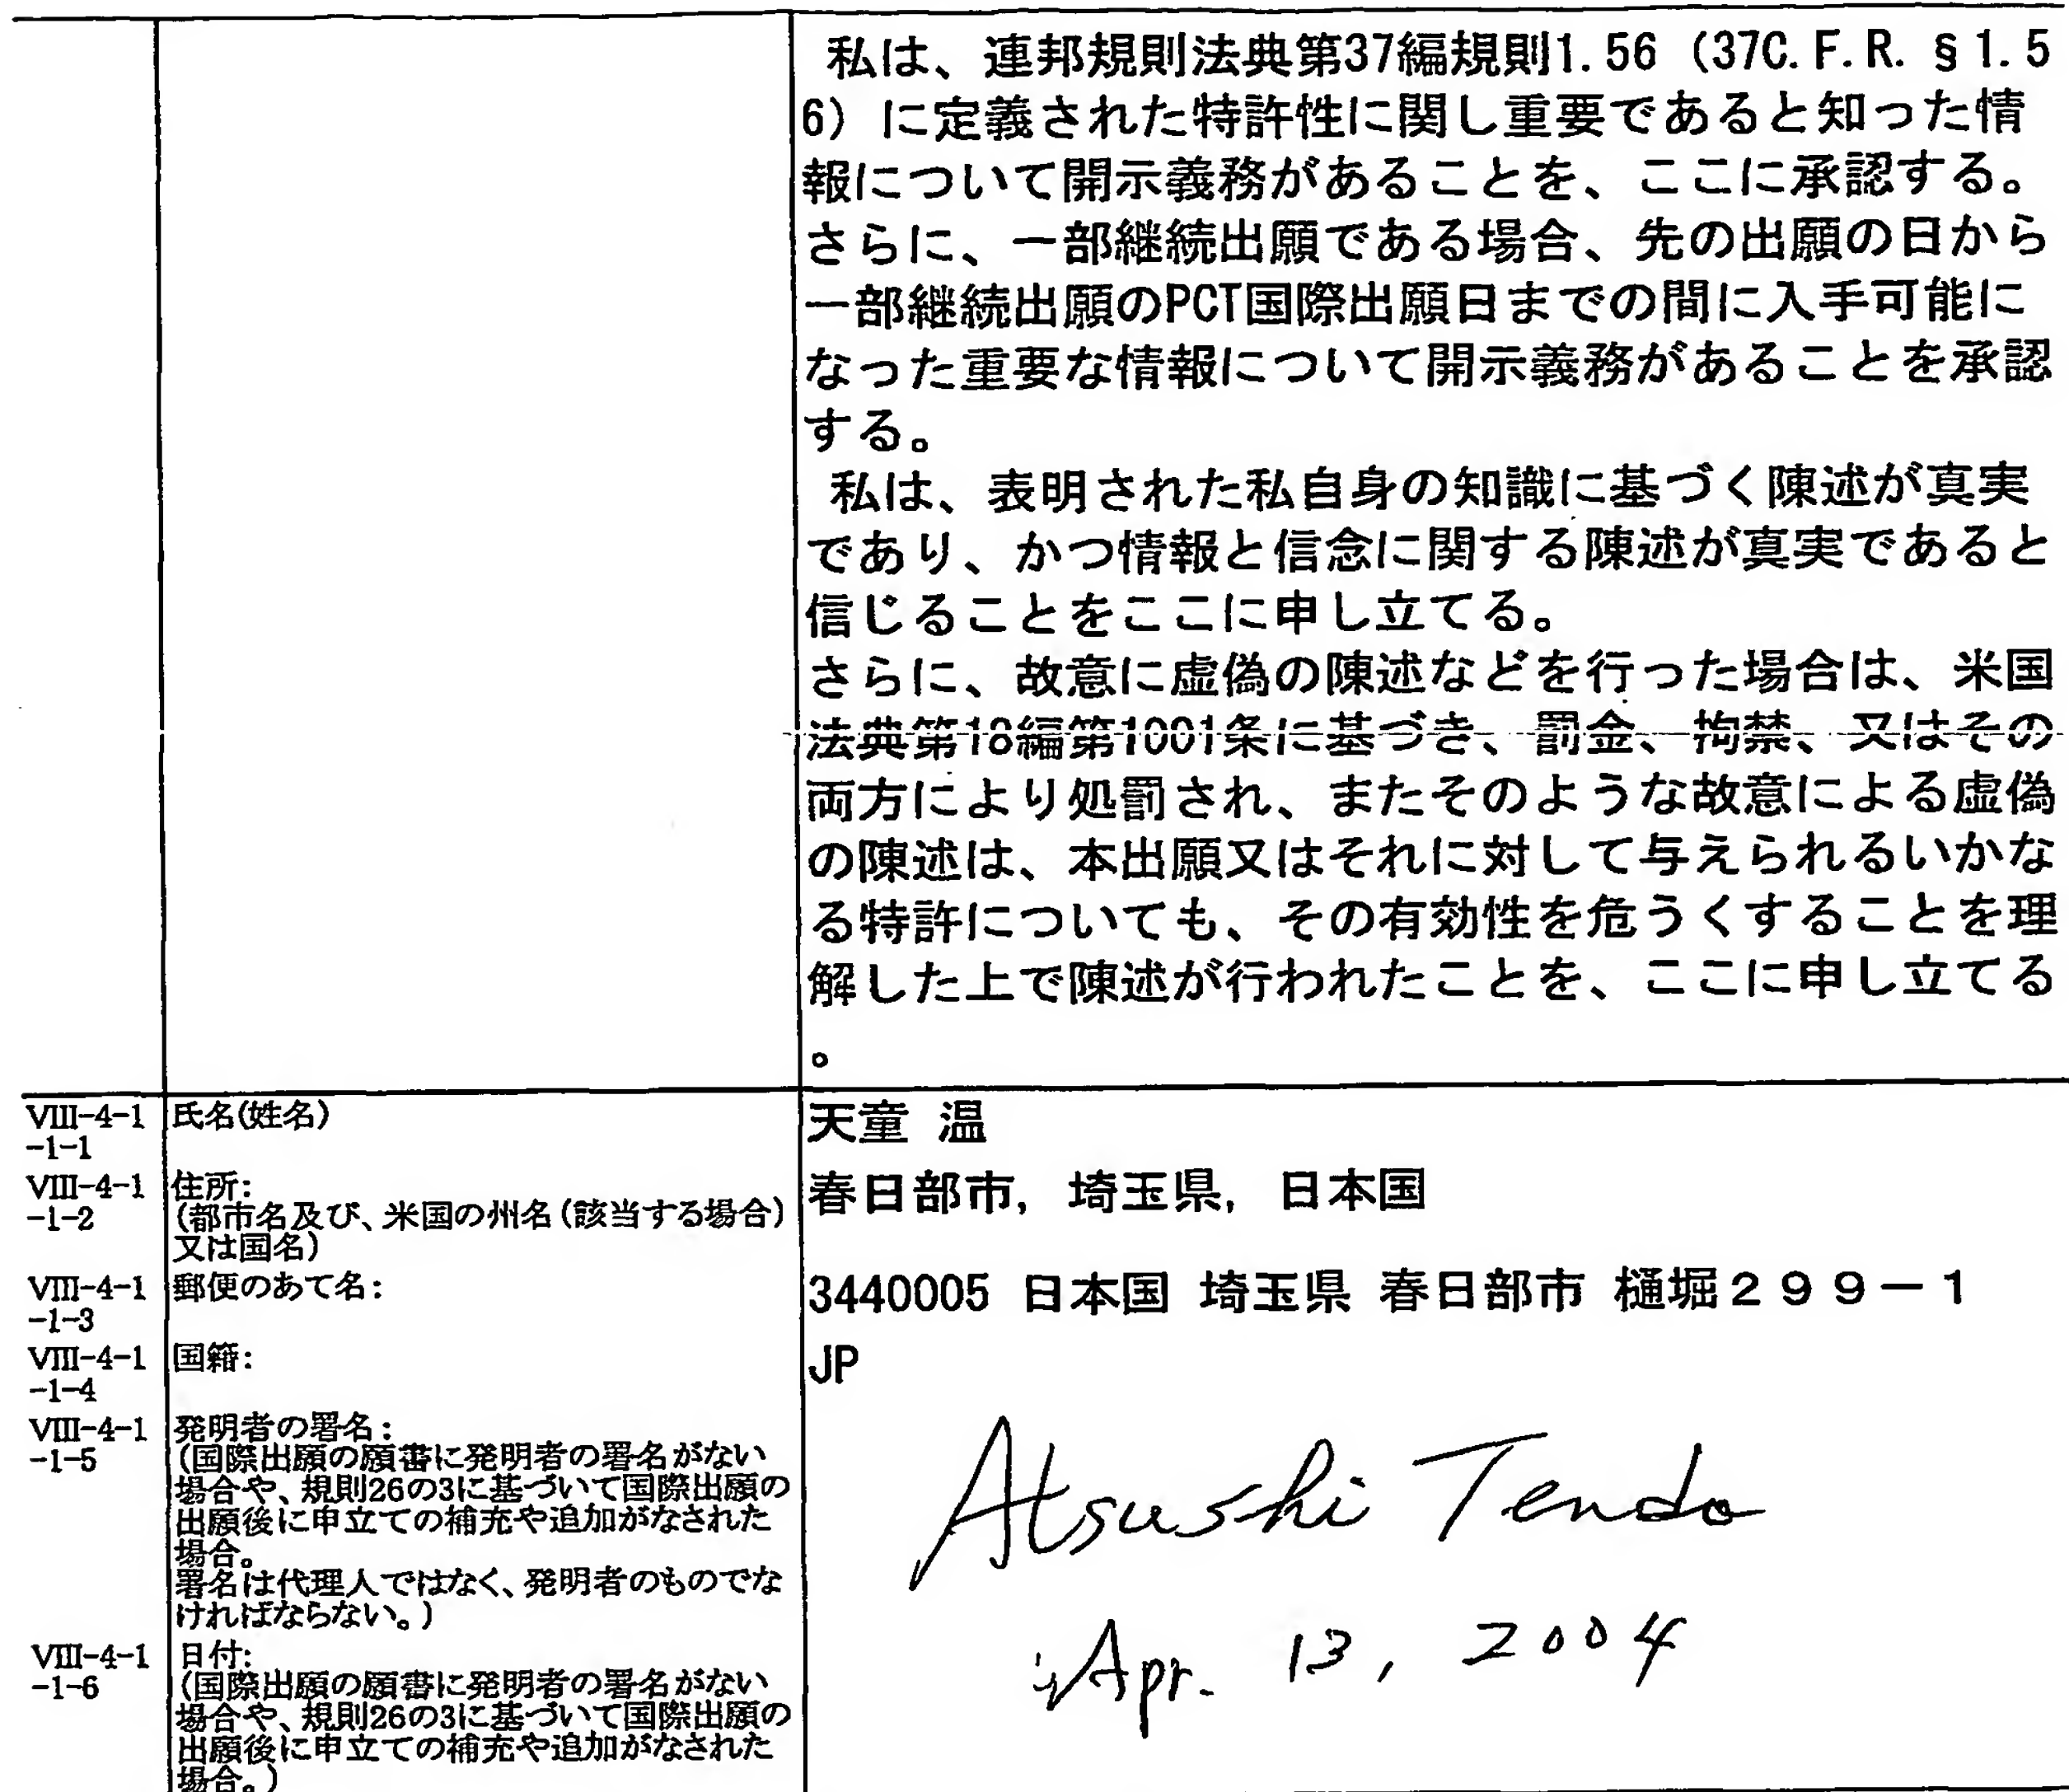 私は、連邦規則法典第37編規則1.56（37C.F.R.§1.5
6）に定義された特許性に関し重要であると知った情
報について開示義務があることを、ここに承認する。
さらに、一部継続出願である場合、先の出願の日から
一部継続出願のPCT国際出願日までの間に入手可能に
なった重要な情報について開示義務があることを承認
する。
私は、表明された私自身の知識に基づく陳述が真実
であり、かつ情報と信念に関する陳述が真実であると
信じることをここに申し立てる。
さらに、故意に虚偽の陳述などを行った場合は、米国
法典第18編第1001条に基づき、罰金、拘禁、又はその
両方により処罰され、またそのような故意による虚偽
の陳述は、本出願又はそれに対して与えられるいかな
る特許についても、その有効性を危うくすることを理
解した上で陳述が行われたことを、ここに申し立てる
。
VIII-4-1 氏名(姓名) 天童 温
-1-1
VIII-4-1 住所: 春日部市, 埼玉県, 日本国
-1-2 (都市名及び、米国の州名(該当する場合)
又は国名)
VIII-4-1 郵便のあて名: 3440005 日本国 埼玉県 春日部市 樋堀２９９－１
-1-3
VIII-4-1 国籍: JP
-1-4
VIII-4-1 発明者の署名: Atsushi Tendo
-1-5 (国際出願の願書に発明者の署名がない
場合や、規則26の3に基づいて国際出願の
出願後に申立ての補充や追加がなされた
場合。
署名は代理人ではなく、発明者のものでな
ければならない。)
VIII-4-1 日付: Apr. 13, 2004
-1-6 (国際出願の願書に発明者の署名がない
場合や、規則26の3に基づいて国際出願の
出願後に申立ての補充や追加がなされた
場合。)